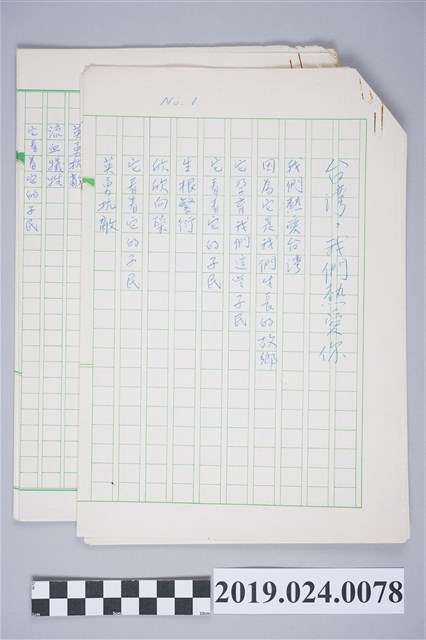 No. 1
台湾，我們熱愛你
我們熱愛台湾
因為它是我們生長的故鄉
它孕育我們這些子民
它看着它的子民
生根繁衍
欣欣向榮
它看着它的子民
英勇抗敵
英勇抗敵
流血犧牲
它看着它的子民
2019.024.0078